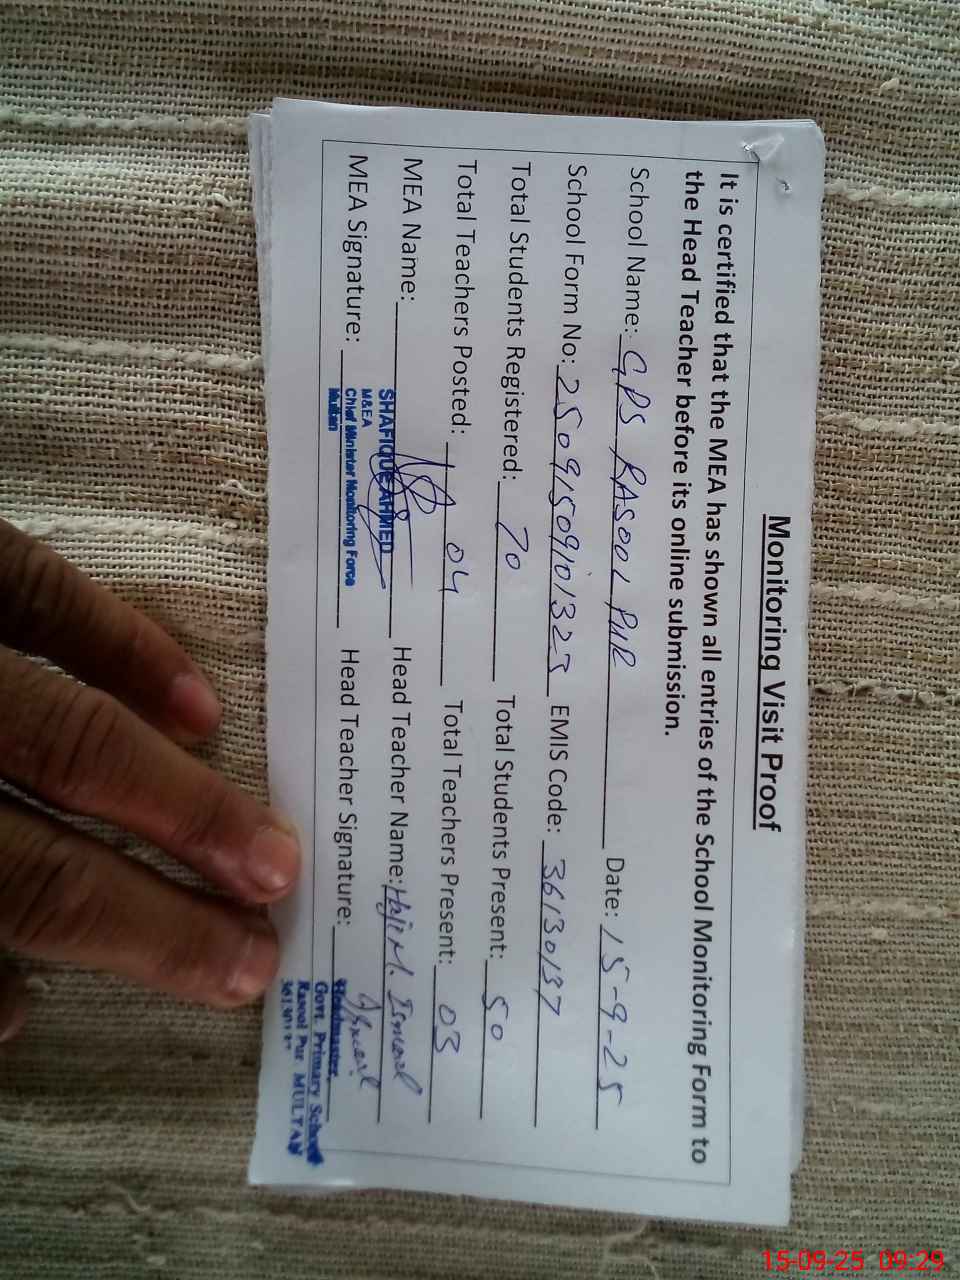 Monitoring Visit Proof
It is certified that the MEA has shown all entries of the School Monitoring Form to
the Head Teacher before its online submission.
School Name: GPS RASOOL PUR Date: 15-9-25
School Form No: 250915090101323 EMIS Code: 36130137
Total Students Registered: 70 Total Students Present: 50
Total Teachers Posted: 04 Total Teachers Present: 03
MEA Name: SHAFIQUE AHMED Head Teacher Name: Haji M. Ismail
M&EA
MEA Signature: Chief Minister Monitoring Force Head Teacher Signature:
Multan
Headmaster,
Govt. Primary School
Rasool Pur MULTAN
15-09-25 09:29